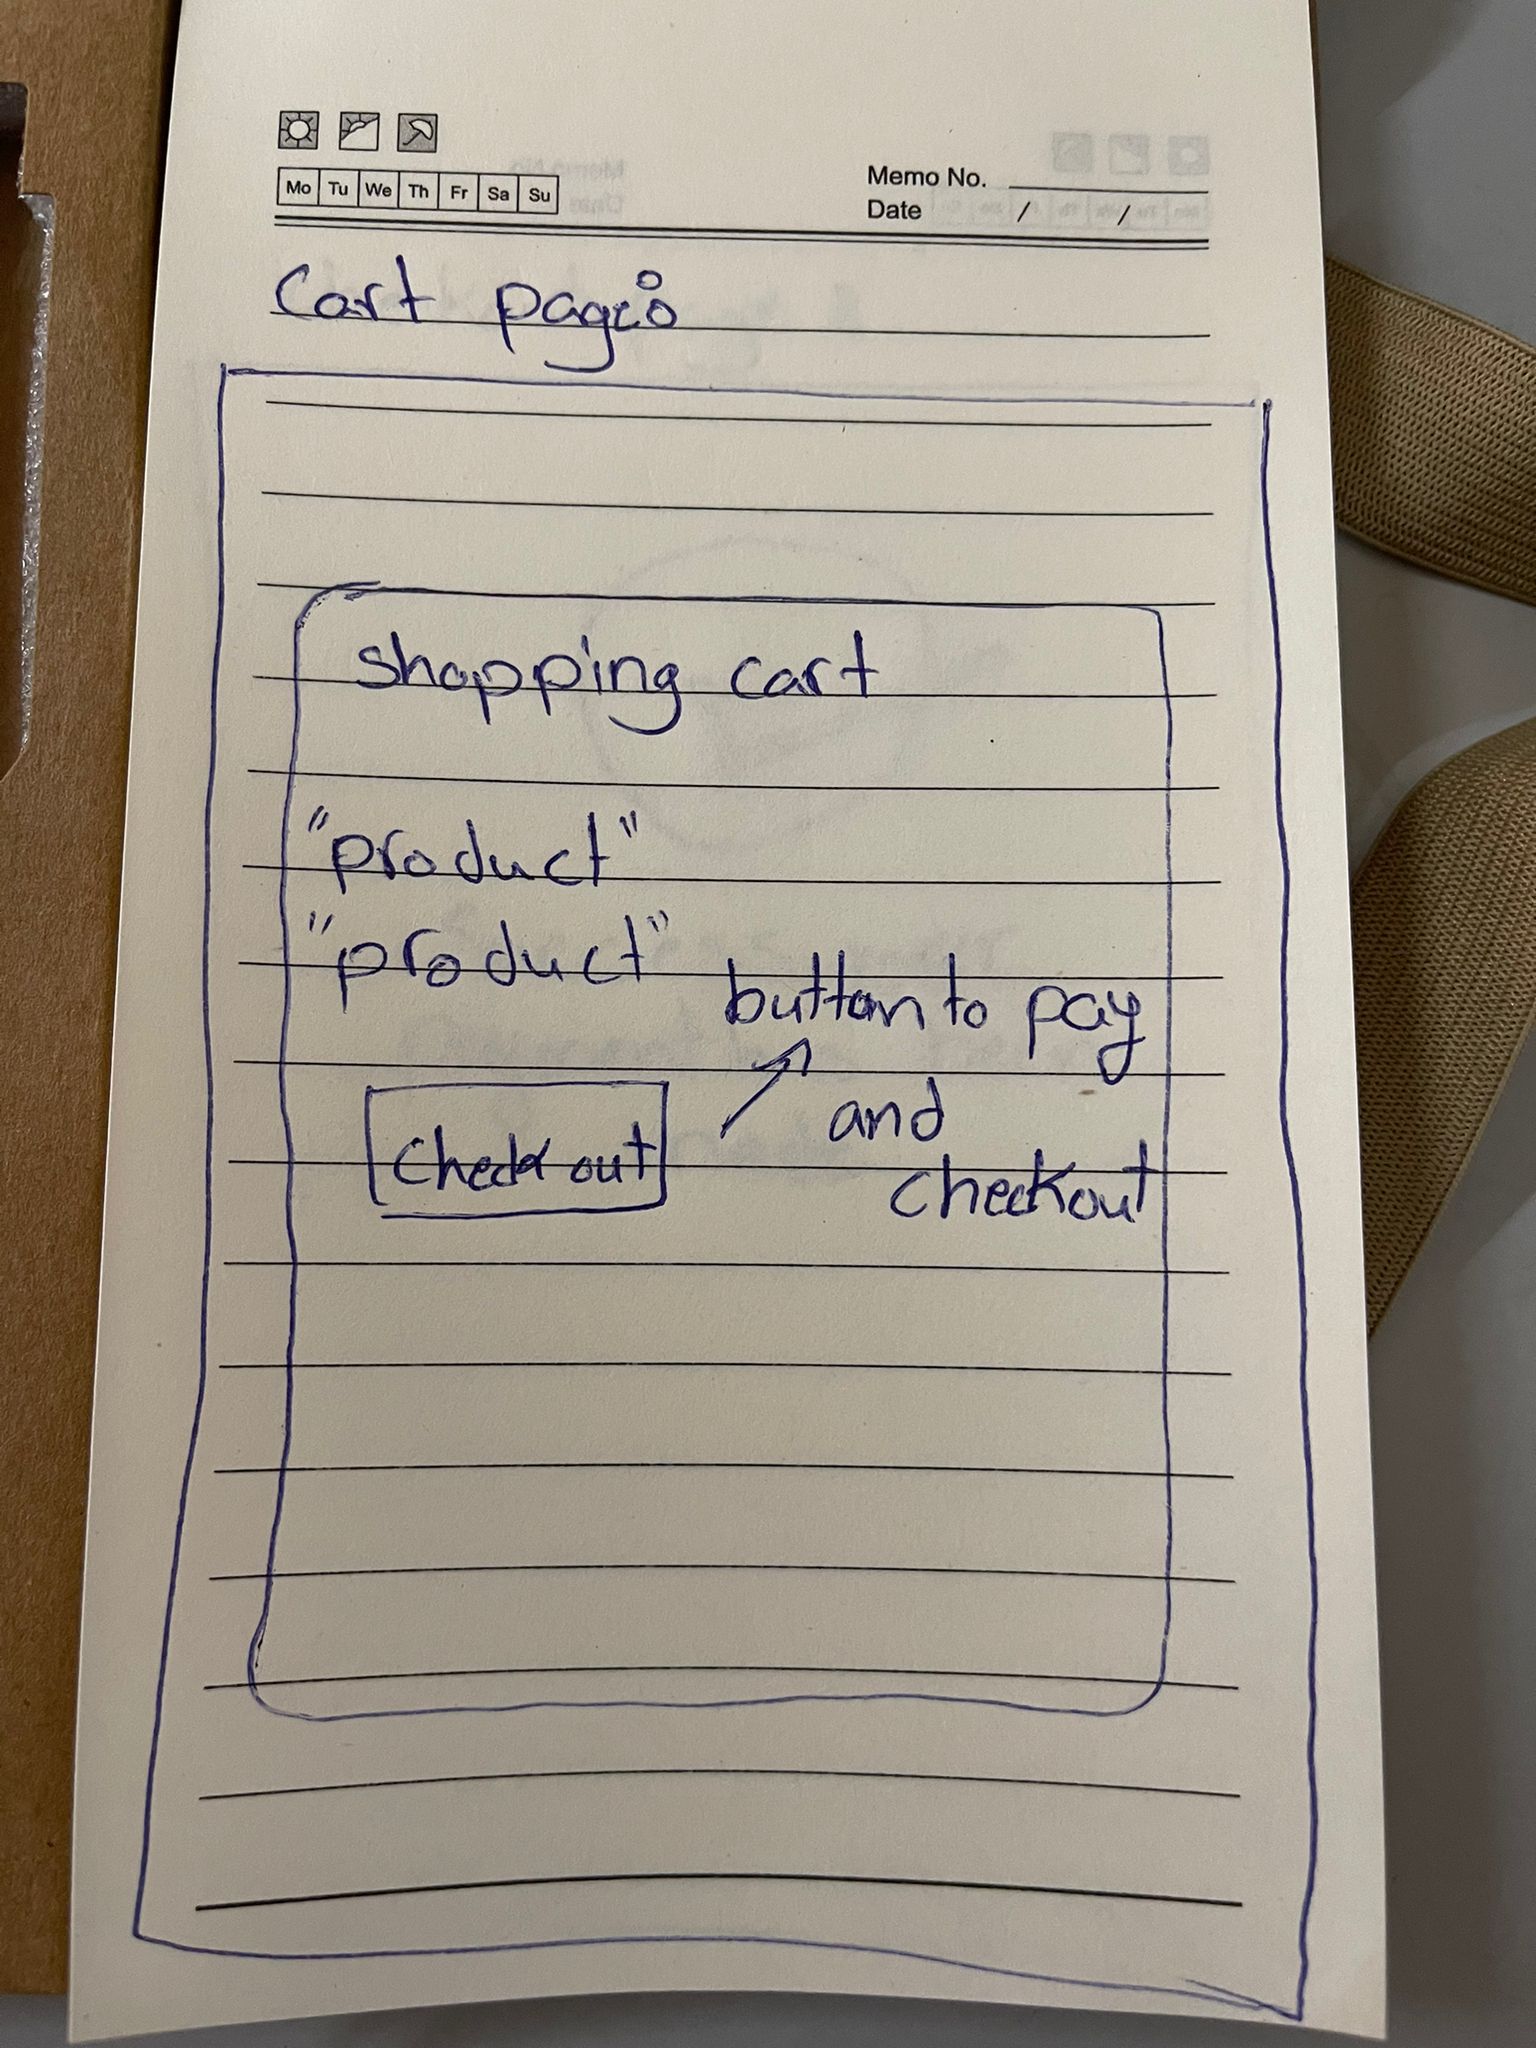 Mo Tu We Th Fr Sa Su
Memo No.
Date / /
Cart page:
shopping cart
"product"
"product"
button to pay
and
checkout
Check out